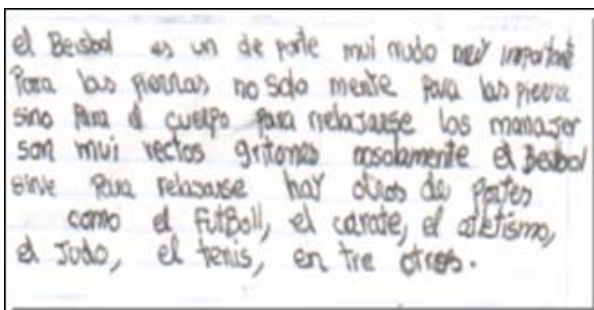 el Beisbol es un de porte mui rudo muy important
Para las piernas no solo mente para las pierna
sino Para el cuerpo para relajarse los manajer
son mui rectos gritones nosolamente el Beisbol
sirve Para relajarse hay otros de portes
como el FutBoll, el carate, el atletismo,
el Judo, el tenis, en tre otros.